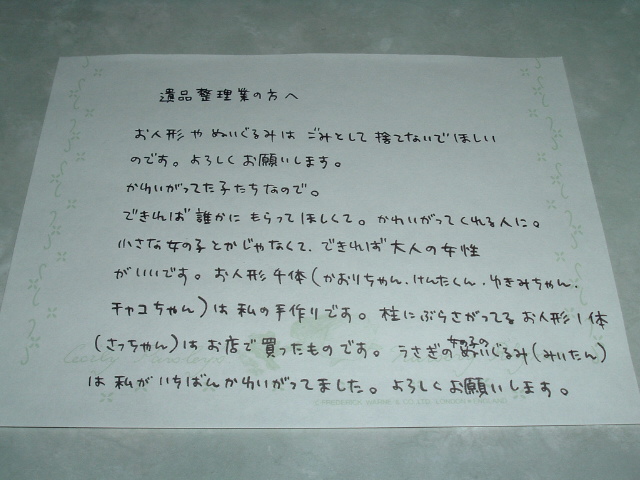 遺品整理業の方へ
お人形やぬいぐるみはごみとして捨てないでほしい
のです。よろしくお願いします。
かわいがってた子たちなので。
できれば誰かにもらってほしくて。かわいがってくれる人に。
小さな女の子とかじゃなくて、できれば大人の女性
がいいです。お人形4体(かおりちゃん、けんたくん、ゆきみちゃん、
チャコちゃん)は私の手作りです。柱にぶらさがってるお人形1体
(さっちゃん)はお店で買ったものです。うさぎの女の子のぬいぐるみ(みいたん)
は私がいちばんかわいがってました。よろしくお願いします。